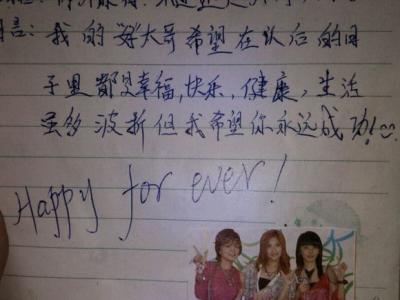 言：我的“好”大哥希望在以后的日
子里都是幸福,快乐,健康,生活
虽多波折但我希望你永远成功!
Happy for ever!